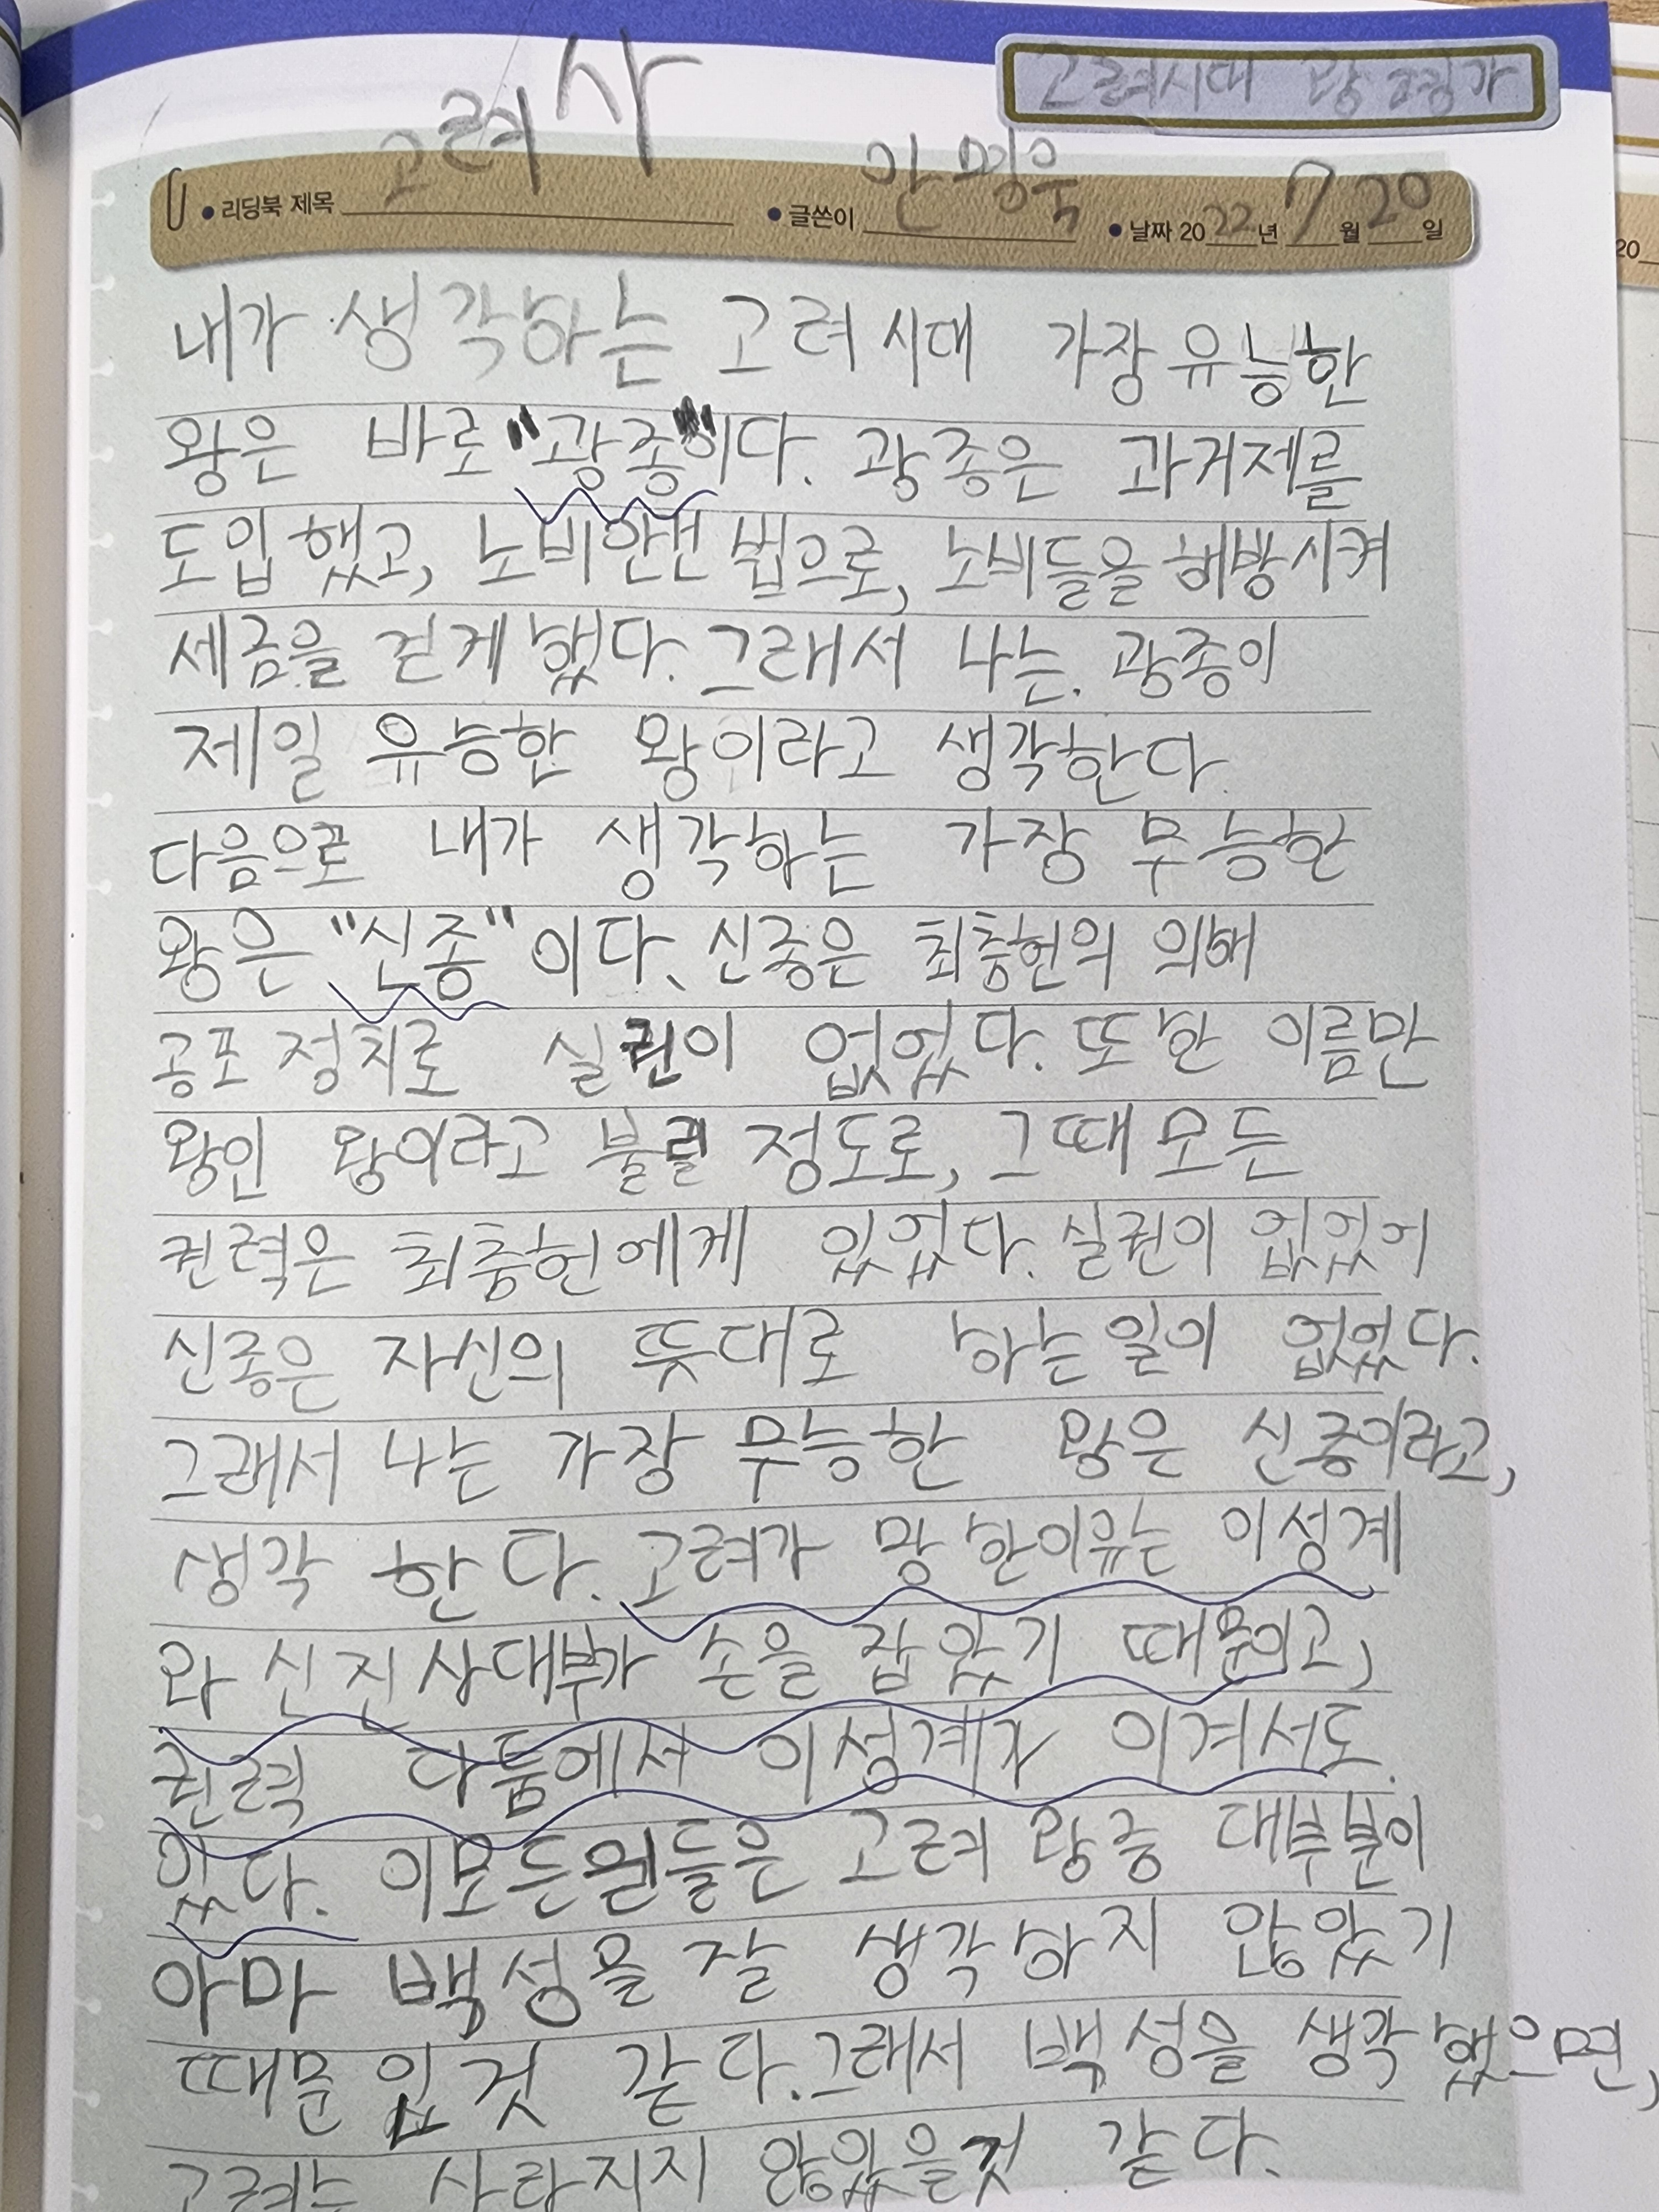 고려시대 왕 평가
고려사
리딩북 제목 글쓴이 안명욱 날짜 2022년 7월 20일
내가 생각하는 고려시대 가장 유능한
왕은 바로 "광종"이다. 광종은 과거제를
도입했고, 노비안번법으로, 노비들을 해방시켜
세금을 걷게 했다. 그래서 나는. 광종이
제일 유능한 왕이라고 생각한다.
다음으로 내가 생각하는 가장 무능한
왕은 "신종"이다. 신종은 최충헌의 의해
공포정치로 실권이 없었다. 또한 이름만
왕인 왕이라고 불릴 정도로, 그때 모든
권력은 최충헌에게 있었다. 실권이 없었어
신종은 자신의 뜻대로 하는일이 없었다.
그래서 나는 가장 무능한 왕은 신종이라고,
생각 한다. 고려가 망한이유는 이성계
와 신진사대부가 손을 잡았기 때문이고,
권력 다툼에서 이성계가 이겨서도
있다. 이모든일들은 고려 왕중 대부분이
아마 백성을 잘 생각하지 않았기
때문인것 같다. 그래서 백성을 생각했으면,
고려는 사라지지 않았을것 같다.
20